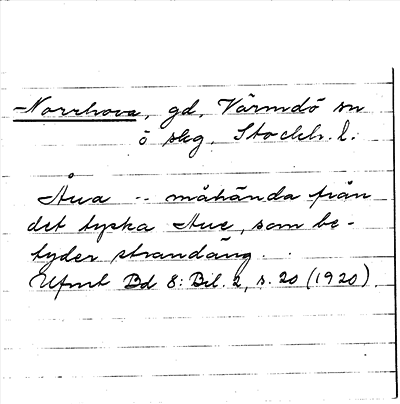 Norrhova, gd, Värmdö sn
ö skg. Stockh. l.
Åva -- måhända från
det tyska Aue, som be-
tyder strandäng.
Ufmt Bd 8: Bil. 2, s. 20 (1920).